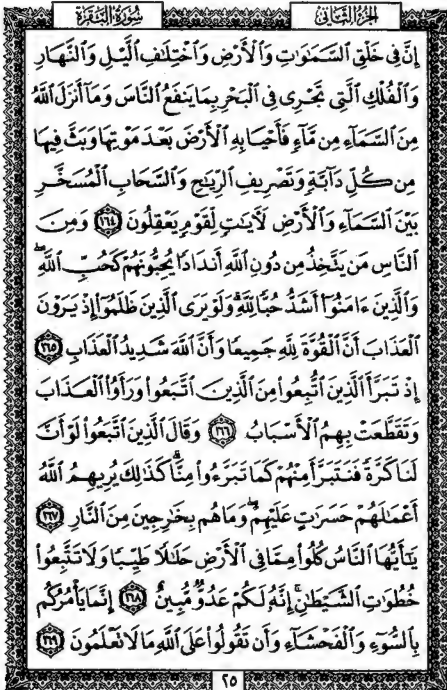 سُورَةُ الْبَقَرَةِ
الجُزْءُ الثَّانِي
إِنَّ فِي خَلْقِ ٱلسَّمَٰوَٰتِ وَٱلْأَرْضِ وَٱخْتِلَٰفِ ٱلَّيْلِ وَٱلنَّهَارِ
وَٱلْفُلْكِ ٱلَّتِى تَجْرِى فِى ٱلْبَحْرِ بِمَا يَنفَعُ ٱلنَّاسَ وَمَآ أَنزَلَ ٱللَّهُ
مِنَ ٱلسَّمَآءِ مِن مَّآءٍ فَأَحْيَا بِهِ ٱلْأَرْضَ بَعْدَ مَوْتِهَا وَبَثَّ فِيهَا
مِن كُلِّ دَآبَّةٍ وَتَصْرِيفِ ٱلرِّيَٰحِ وَٱلسَّحَابِ ٱلْمُسَخَّرِ
بَيْنَ ٱلسَّمَآءِ وَٱلْأَرْضِ لَءَايَٰتٍ لِّقَوْمٍ يَعْقِلُونَ ١٦٤ وَمِنَ
ٱلنَّاسِ مَن يَتَّخِذُ مِن دُونِ ٱللَّهِ أَندَادًا يُحِبُّونَهُمْ كَحُبِّ ٱللَّهِ ۖ
وَٱلَّذِينَ ءَامَنُوٓا۟ أَشَدُّ حُبًّا لِّلَّهِ ۗ وَلَوْ يَرَى ٱلَّذِينَ ظَلَمُوٓا۟ إِذْ يَرَوْنَ
ٱلْعَذَابَ أَنَّ ٱلْقُوَّةَ لِلَّهِ جَمِيعًا وَأَنَّ ٱللَّهَ شَدِيدُ ٱلْعَذَابِ ١٦٥
إِذْ تَبَرَّأَ ٱلَّذِينَ ٱتُّبِعُوا۟ مِنَ ٱلَّذِينَ ٱتَّبَعُوا۟ وَرَأَوُا۟ ٱلْعَذَابَ
وَتَقَطَّعَتْ بِهِمُ ٱلْأَسْبَابُ ١٦٦ وَقَالَ ٱلَّذِينَ ٱتَّبَعُوا۟ لَوْ أَنَّ
لَنَا كَرَّةً فَنَتَبَرَّأَ مِنْهُمْ كَمَا تَبَرَّءُوا۟ مِنَّا ۗ كَذَٰلِكَ يُرِيهِمُ ٱللَّهُ
أَعْمَٰلَهُمْ حَسَرَٰتٍ عَلَيْهِمْ ۖ وَمَا هُم بِخَٰرِجِينَ مِنَ ٱلنَّارِ ١٦٧
يَٰٓأَيُّهَا ٱلنَّاسُ كُلُوا۟ مِمَّا فِى ٱلْأَرْضِ حَلَٰلًا طَيِّبًا وَلَا تَتَّبِعُوا۟
خُطُوَٰتِ ٱلشَّيْطَٰنِ ۚ إِنَّهُۥ لَكُمْ عَدُوٌّ مُّبِينٌ ١٦٨ إِنَّمَا يَأْمُرُكُم
بِٱلسُّوٓءِ وَٱلْفَحْشَآءِ وَأَن تَقُولُوا۟ عَلَى ٱللَّهِ مَا لَا تَعْلَمُونَ ١٦٩
٢٥